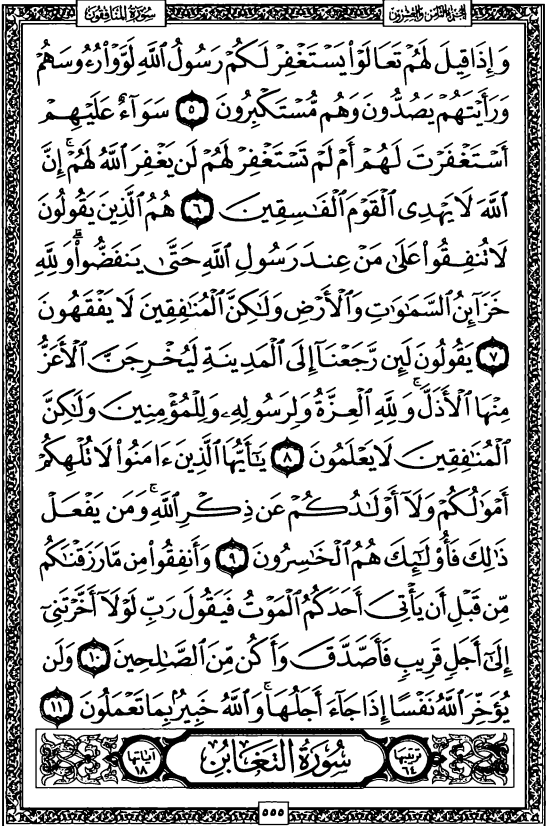 الجزء الثامن والعشرون
سورة المنافقون
وَإِذَا قِيلَ لَهُمْ تَعَالَوْا۟ يَسْتَغْفِرْ لَكُمْ رَسُولُ ٱللَّهِ لَوَّوْا۟ رُءُوسَهُمْ
وَرَأَيْتَهُمْ يَصُدُّونَ وَهُم مُّسْتَكْبِرُونَ ٥ سَوَآءٌ عَلَيْهِمْ
أَسْتَغْفَرْتَ لَهُمْ أَمْ لَمْ تَسْتَغْفِرْ لَهُمْ لَن يَغْفِرَ ٱللَّهُ لَهُمْ ۚ إِنَّ
ٱللَّهَ لَا يَهْدِى ٱلْقَوْمَ ٱلْفَـٰسِقِينَ ٦ هُمُ ٱلَّذِينَ يَقُولُونَ
لَا تُنفِقُوا۟ عَلَىٰ مَنْ عِندَ رَسُولِ ٱللَّهِ حَتَّىٰ يَنفَضُّوا۟ ۗ وَلِلَّهِ
خَزَآئِنُ ٱلسَّمَـٰوَٰتِ وَٱلْأَرْضِ وَلَـٰكِنَّ ٱلْمُنَـٰفِقِينَ لَا يَفْقَهُونَ
٧ يَقُولُونَ لَئِن رَّجَعْنَآ إِلَى ٱلْمَدِينَةِ لَيُخْرِجَنَّ ٱلْأَعَزُّ
مِنْهَا ٱلْأَذَلَّ ۚ وَلِلَّهِ ٱلْعِزَّةُ وَلِرَسُولِهِۦ وَلِلْمُؤْمِنِينَ وَلَـٰكِنَّ
ٱلْمُنَـٰفِقِينَ لَا يَعْلَمُونَ ٨ يَـٰٓأَيُّهَا ٱلَّذِينَ ءَامَنُوا۟ لَا تُلْهِكُمْ
أَمْوَٰلُكُمْ وَلَآ أَوْلَـٰدُكُمْ عَن ذِكْرِ ٱللَّهِ ۚ وَمَن يَفْعَلْ
ذَٰلِكَ فَأُو۟لَـٰٓئِكَ هُمُ ٱلْخَـٰسِرُونَ ٩ وَأَنفِقُوا۟ مِن مَّا رَزَقْنَـٰكُم
مِّن قَبْلِ أَن يَأْتِىَ أَحَدَكُمُ ٱلْمَوْتُ فَيَقُولَ رَبِّ لَوْلَآ أَخَّرْتَنِىٓ
إِلَىٰٓ أَجَلٍ قَرِيبٍ فَأَصَّدَّقَ وَأَكُن مِّنَ ٱلصَّـٰلِحِينَ ١٠ وَلَن
يُؤَخِّرَ ٱللَّهُ نَفْسًا إِذَا جَآءَ أَجَلُهَا ۚ وَٱللَّهُ خَبِيرٌۢ بِمَا تَعْمَلُونَ ١١
ترتيبها ٦٤ سُورَةُ التَّغَابُنِ آياتها ١٨
٥٥٥